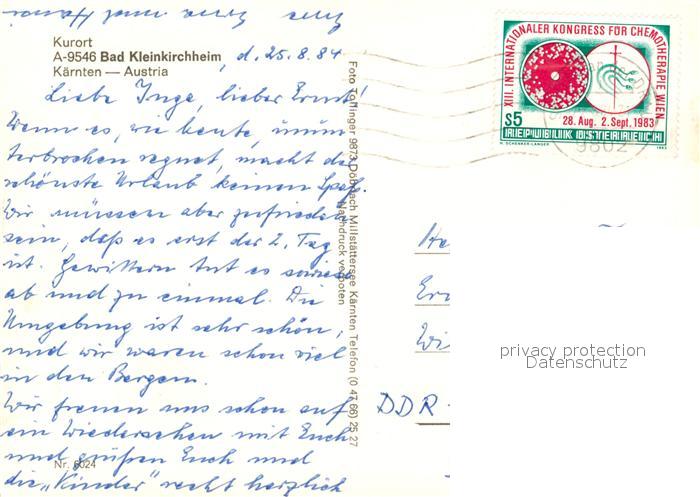 Kurort
A-9546 Bad Kleinkirchheim
Kärnten — Austria
, d. 25.8.84
Liebe Inge, lieber Ernst!
Wenn es, wie heute, unun-
terbrochen regnet, macht der
schönste Urlaub keinen Spaß.
Wir müssen aber zufrieden
sein, daß es erst der 2. Tag
ist. Gewittern tut es sowieso
ab und zu einmal. Die
Umgebung ist sehr schön,
und wir waren schon viel
in den Bergen.
Wir freuen uns schon auf
ein Wiedersehen mit Euch
und grüßen Euch und
die „Kinder" recht herzlich
Eure und
Nr. 6024
Foto Tollinger 9873 Döbriach Millstättersee Kärnten Telefon (0 47 66) 25 27
Nachdruck verboten
XIII. INTERNATIONALER KONGRESS FÜR CHEMOTHERAPIE WIEN
28. Aug. 2. Sept. 1983
S5
REPUBLIK ÖSTERREICH
H. SCHENKER-LANGER
1983
9802
DDR
privacy protection
Datenschutz